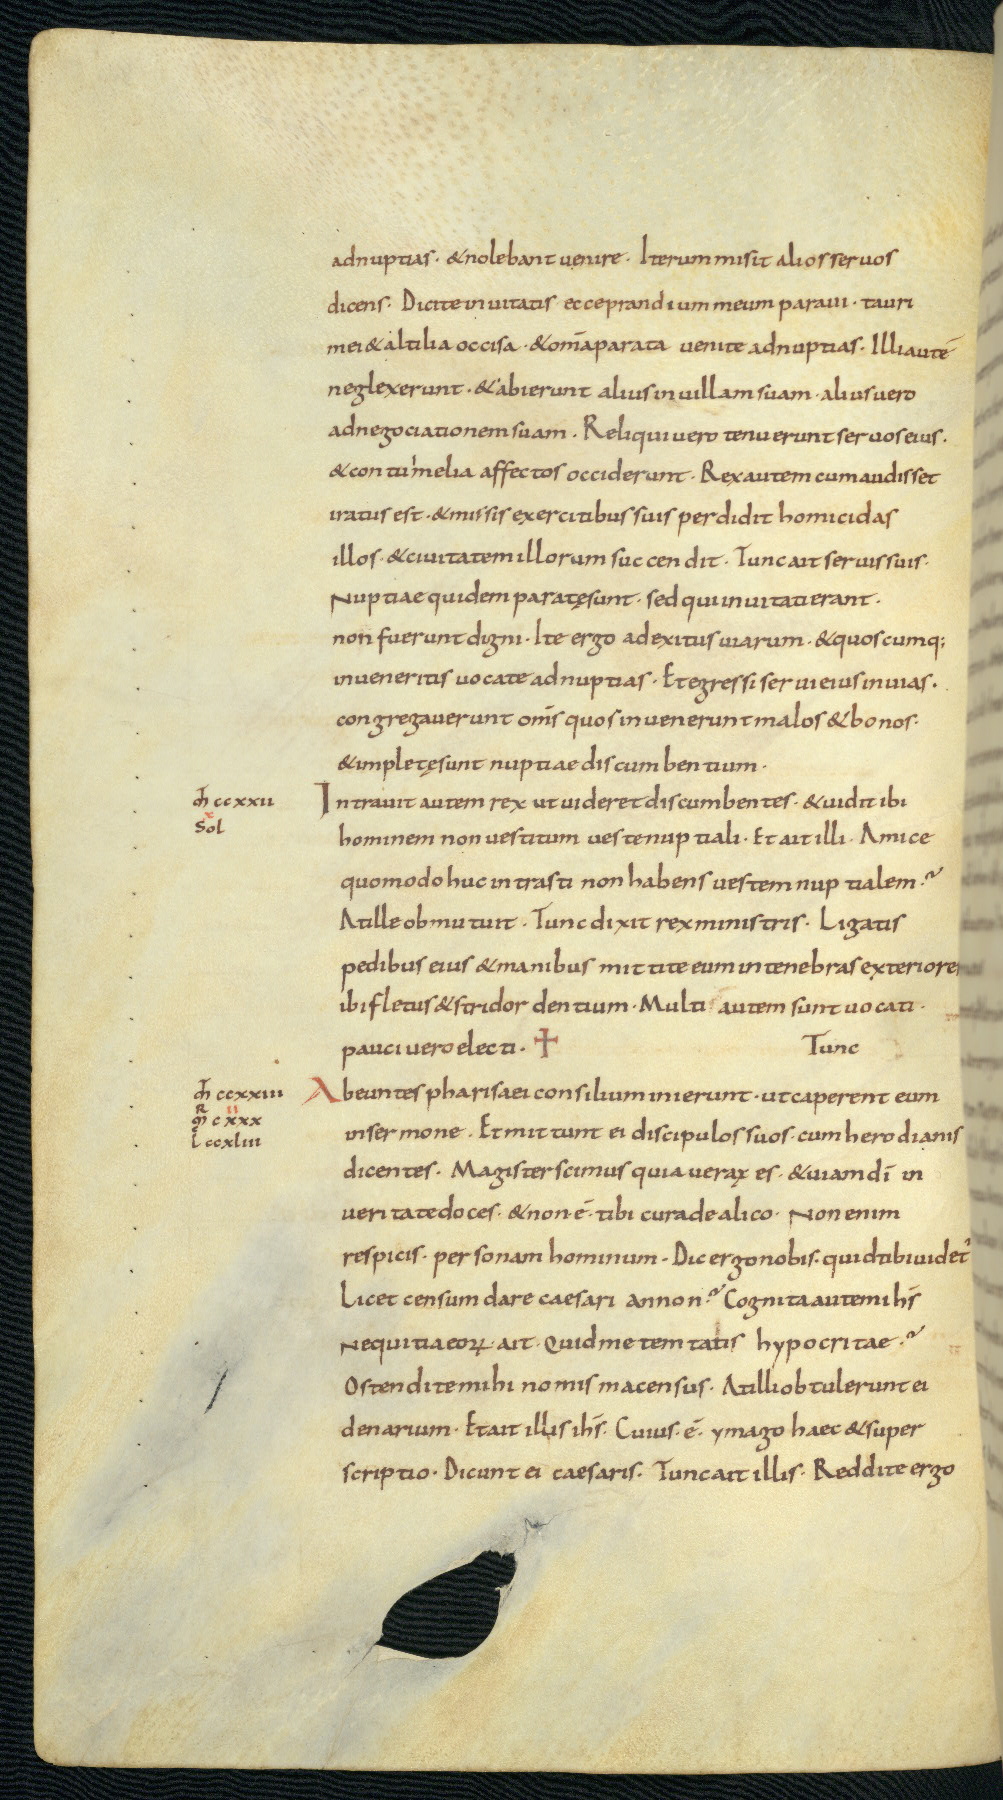 ad nuptias · & nolebant uenire · Iterum misit alios seruos
dicens · Dicite inuitatis ecce prandium meum paraui · tauri
mei & altilia occisa · & om̄a parata uenite ad nuptias · Illi autē
neglexerunt · & abierunt alius in uillam suam · alius uero
ad negociationem suam · Reliqui uero tenuerunt seruos eius ·
& contumelia affectos occiderunt · Rex autem cum audisset
iratus est · & missis exercitibus suis perdidit homicidas
illos · & ciuitatem illorum succendit · Tunc ait seruis suis ·
Nuptiae quidem paratę sunt · sed qui inuitati erant ·
non fuerunt digni · Ite ergo ad exitus uiarum · & quoscumq;
inueneritis uocate ad nuptias · Et egressi serui eius in uias ·
congregauerunt om̄s quos inuenerunt malos & bonos ·
& impletę sunt nuptiae discumbentium ·
m̄ ccxxii Intrauit autem rex ut uideret discumbentes · & uidit ibi
x
Sol hominem non uestitum ueste nuptiali · Et ait illi · Amice
quomodo huc intrasti non habens uestem nuptialem ·?
At ille obmutuit · Tunc dixit rex ministris · Ligatis
pedibus eius & manibus mittite eum in tenebras exteriores
ibi fletus & stridor dentium · Multi autem sunt uocati ·
pauci uero electi · ✝ Tunc
m̄ ccxxiii Abeuntes pharisaei consilium inierunt · ut caperent eum
R cxxx ii in sermone · Et mittunt ei discipulos suos · cum herodianis
l ccxliii dicentes · Magister scimus quia uerax es · & uiam dī in
ueritate doces · & non ē · tibi cura de alico · Non enim
respicis · personam hominum · Dic ergo nobis · quid tibi uidet'
Licet censum dare caesari an non ·? Cognita autem ihs̄
Nequitia eoꝝ ait · Quid me temtatis hypocritae ·?
Ostendite mihi nomisma census · At illi obtulerunt ei
denarium · Et ait illis ihs̄ · Cuius · ē · ymago haec & super
scriptio · Dicunt ei caesaris · Tunc ait illis · Reddite ergo